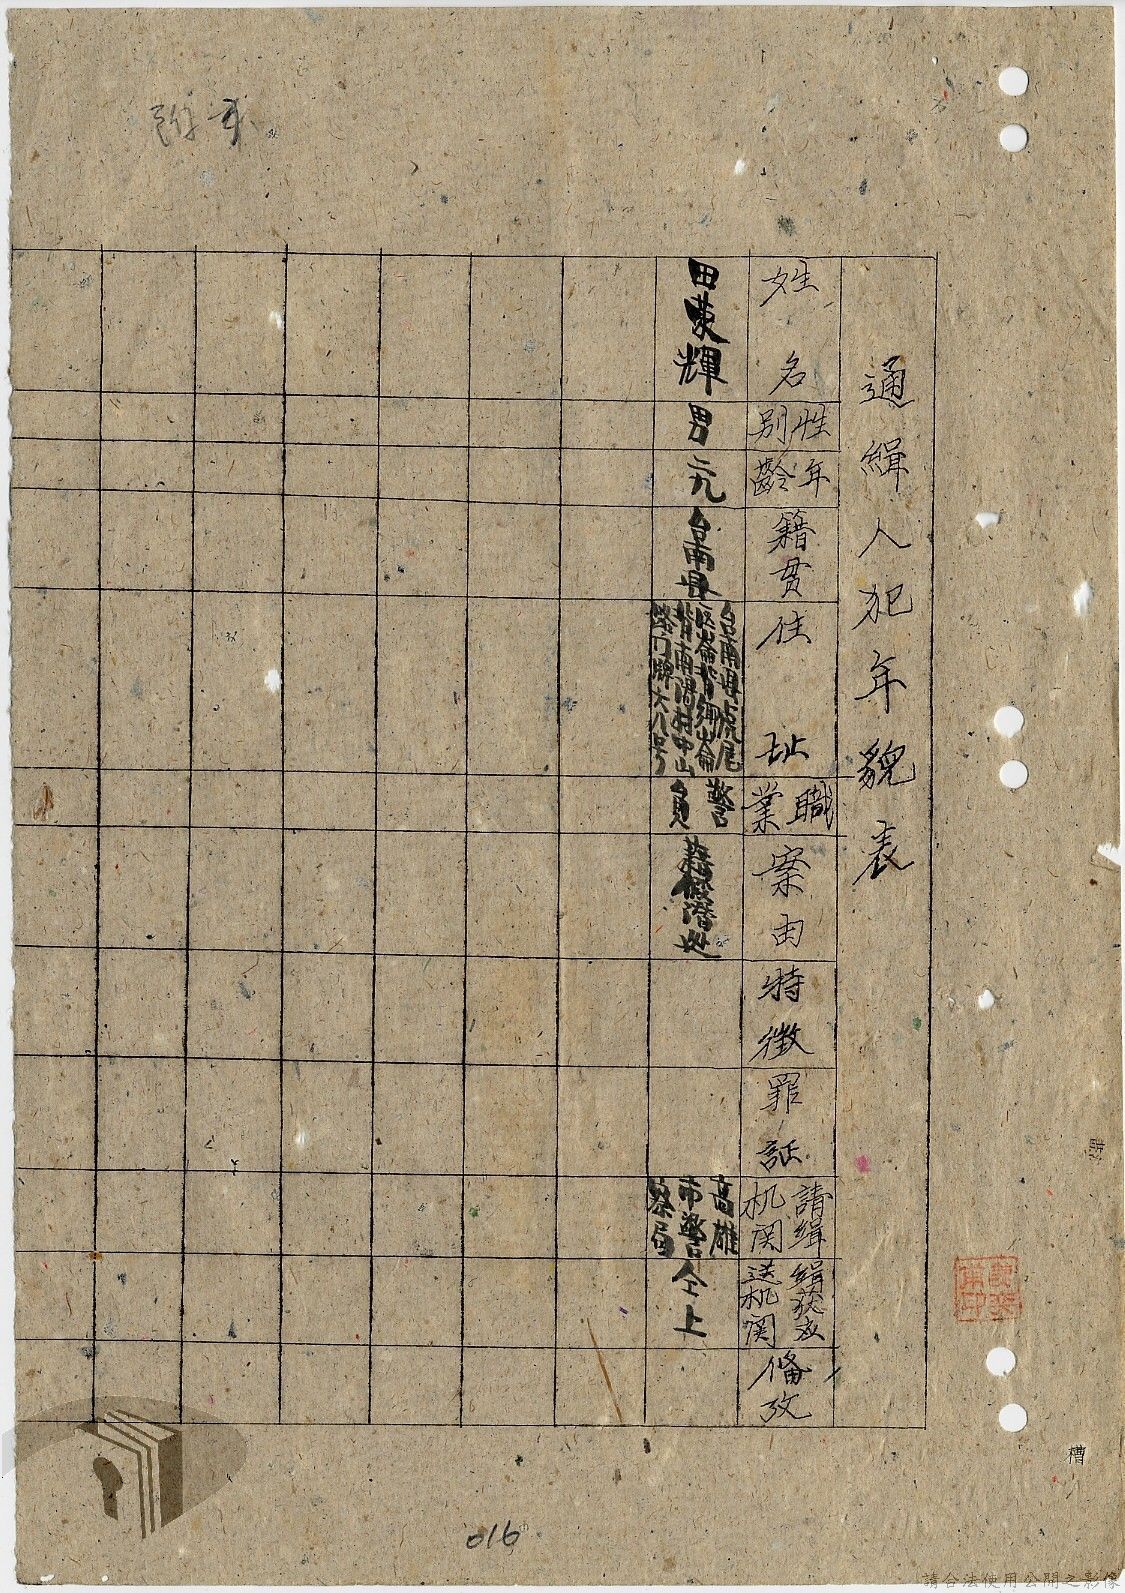 附表
通緝人犯年貌表
姓名
性別
年齡
籍貫
住址
職業
案由
特徵
罪証
請緝机関
緝获应送机関
備攷
田荣輝
男
二九
台南县
台南县虎尾
区崙背鄉崙
背南陽村中山
路门牌六八号
警員
藉假潛逃
高雄
市警
察局
仝上
016
請合法使用公開之影像